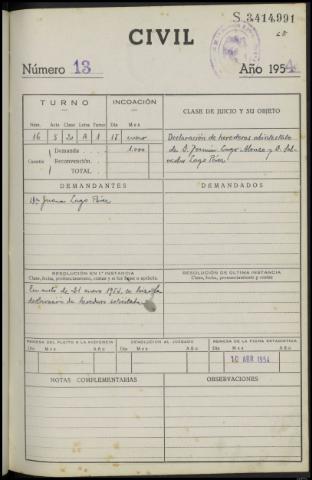 S.3414.991
CIVIL
Número 13 Año 1954
TURNO INCOACIÓN CLASE DE JUICIO Y SU OBJETO
Núm. Acta Clase Letra Fama Día Mes
16 5 20 A 1 15 enero
Declaración de herederos abintestato
Cuantía Demanda 1.000
de D. Fermín Lago Alonso y D. Sal-
Reconvención
vador Lago Pérez
TOTAL
DEMANDANTES DEMANDADOS
Juana Lago Pérez
RESOLUCIÓN EN 1.ª INSTANCIA RESOLUCIÓN DE ÚLTIMA INSTANCIA
Clase, fecha, pronunciamiento, costas
En auto de 21 enero 1954, se hizo la
declaración de herederos solicitada
REMESA DEL PLEITO A LA AUDIENCIA DEVOLUCIÓN AL JUZGADO REMESA DE LA FICHA ESTADÍSTICA
Día Mes Año Día Mes Año Día Mes Año
10 ABR 1954
NOTAS COMPLEMENTARIAS OBSERVACIONES